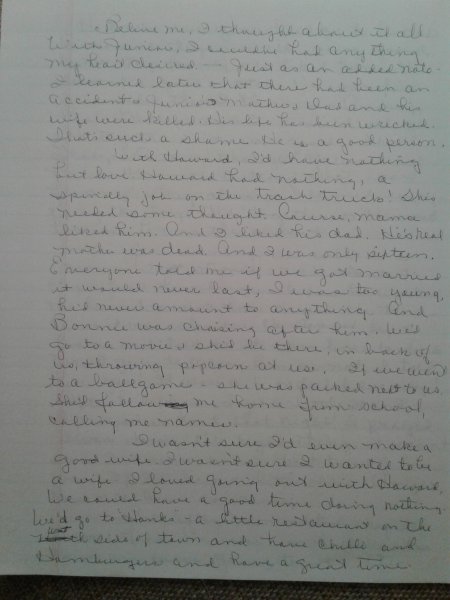 Believe me, I thought about it all
With Junior, I could've had anything
my heart desired — Just as an added note-
I learned later that there had been an
accident & Junior Mathews Dad and his
wife were killed. His life has been wrecked.
Thats such a shame. He is a good person.
With Howard, I'd have nothing
but love. Howard had nothing, a
job on the trash trucks! This
needed some thought. Course, mama
liked him. And I liked his dad. His real
mother was dead. And I was only sixteen.
Everyone told me if we got married
it would never last, I was too young,
he'd never amount to anything. And
Bonnie was chasing after him. We'd
go to a movie & she'd be there, in back of
us, throwing popcorn at use. If we went
to a ballgame - she was parked next to us.
She'd follow me home from school,
calling me names.
I wasn't sure I'd even make a
good wife. I wasn't sure I wanted to be
a wife. I loved going out with Howard.
We could have a good time doing nothing.
We'd go to Hanks - a little restaurant on the
west side of town and have chilli and
Hamburgers and have a great time.